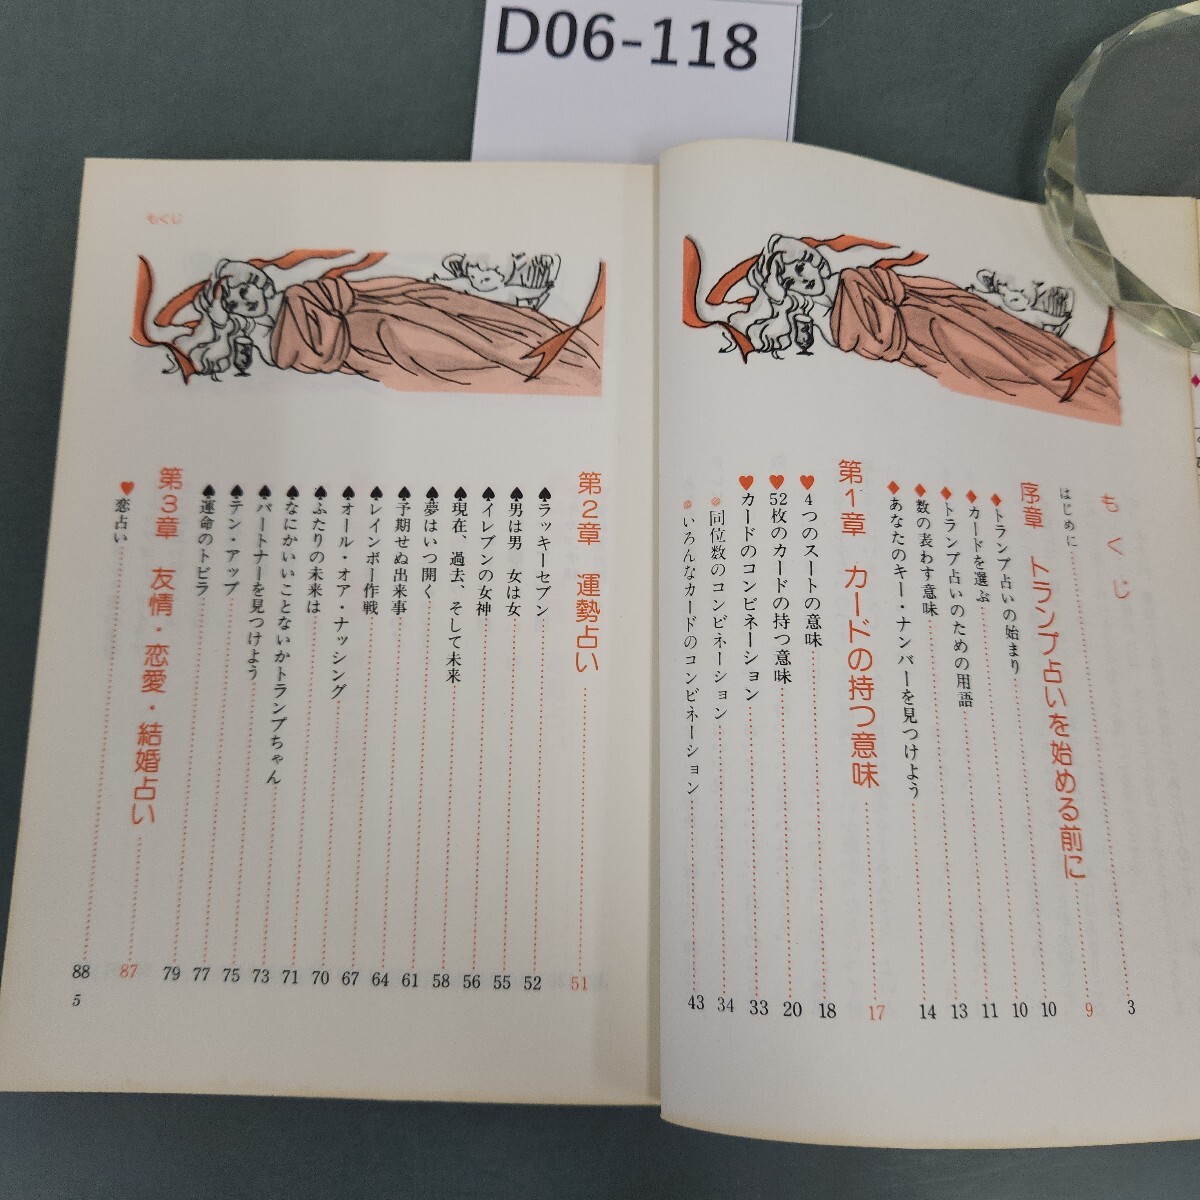 D06-118
もくじ
はじめに 3
序章 トランプ占いを始める前に 9
♦トランプ占いの始まり 10
♦カードを選ぶ 10
♦トランプ占いのための用語 11
♦数の表わす意味 13
♦あなたのキー・ナンバーを見つけよう 14
第1章 カードの持つ意味 17
♥4つのスートの意味 18
♥52枚のカードの持つ意味 20
♥カードのコンビネーション 33
同位数のコンビネーション 34
いろんなカードのコンビネーション 43
第2章 運勢占い 51
♠ラッキーセブン 52
♠男は男 女は女 55
♠イレブンの女神 56
♠現在、過去、そして未来 58
♠夢はいつ開く 61
♠予期せぬ出来事 64
♠レインボー作戦 67
♠オール・オア・ナッシング 70
♠ふたりの未来は 71
♠なにかいいことないかトランプちゃん 73
♠パートナーを見つけよう 75
♠テン・アップ 77
♠運命のトビラ 79
第3章 友情・恋愛・結婚占い 87
♥恋占い 88
5